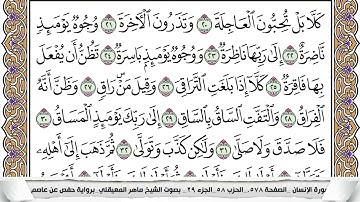 كَلَّا بَلْ تُحِبُّونَ ٱلْعَاجِلَةَ ٢٠ وَتَذَرُونَ ٱلْأَخِرَةَ ٢١ وُجُوهٌ يَوْمَئِذٍ
نَّاضِرَةٌ ٢٢ إِلَىٰ رَبِّهَا نَاظِرَةٌ ٢٣ وَوُجُوهٌ يَوْمَئِذٍۭ بَاسِرَةٌ ٢٤ تَظُنُّ أَن يُفْعَلَ
بِهَا فَاقِرَةٌ ٢٥ كَلَّآ إِذَا بَلَغَتِ ٱلتَّرَاقِىَ ٢٦ وَقِيلَ مَنْ رَاقٍ ٢٧ وَظَنَّ أَنَّهُ
ٱلْفِرَاقُ ٢٨ وَٱلْتَفَّتِ ٱلسَّاقُ بِٱلسَّاقِ ٢٩ إِلَىٰ رَبِّكَ يَوْمَئِذٍ ٱلْمَسَاقُ ٣٠
فَلَا صَدَّقَ وَلَا صَلَّىٰ ٣١ وَلَٰكِن كَذَّبَ وَتَوَلَّىٰ ٣٢ ثُمَّ ذَهَبَ إِلَىٰٓ أَهْلِهِۦ
سورة الإنسان _ الصفحة ٥٧٨ _ الحزب ٥٨ _ الجزء ٢٩ _ بصوت الشيخ ماهر المعيقلي _ برواية حفص عن عاصم